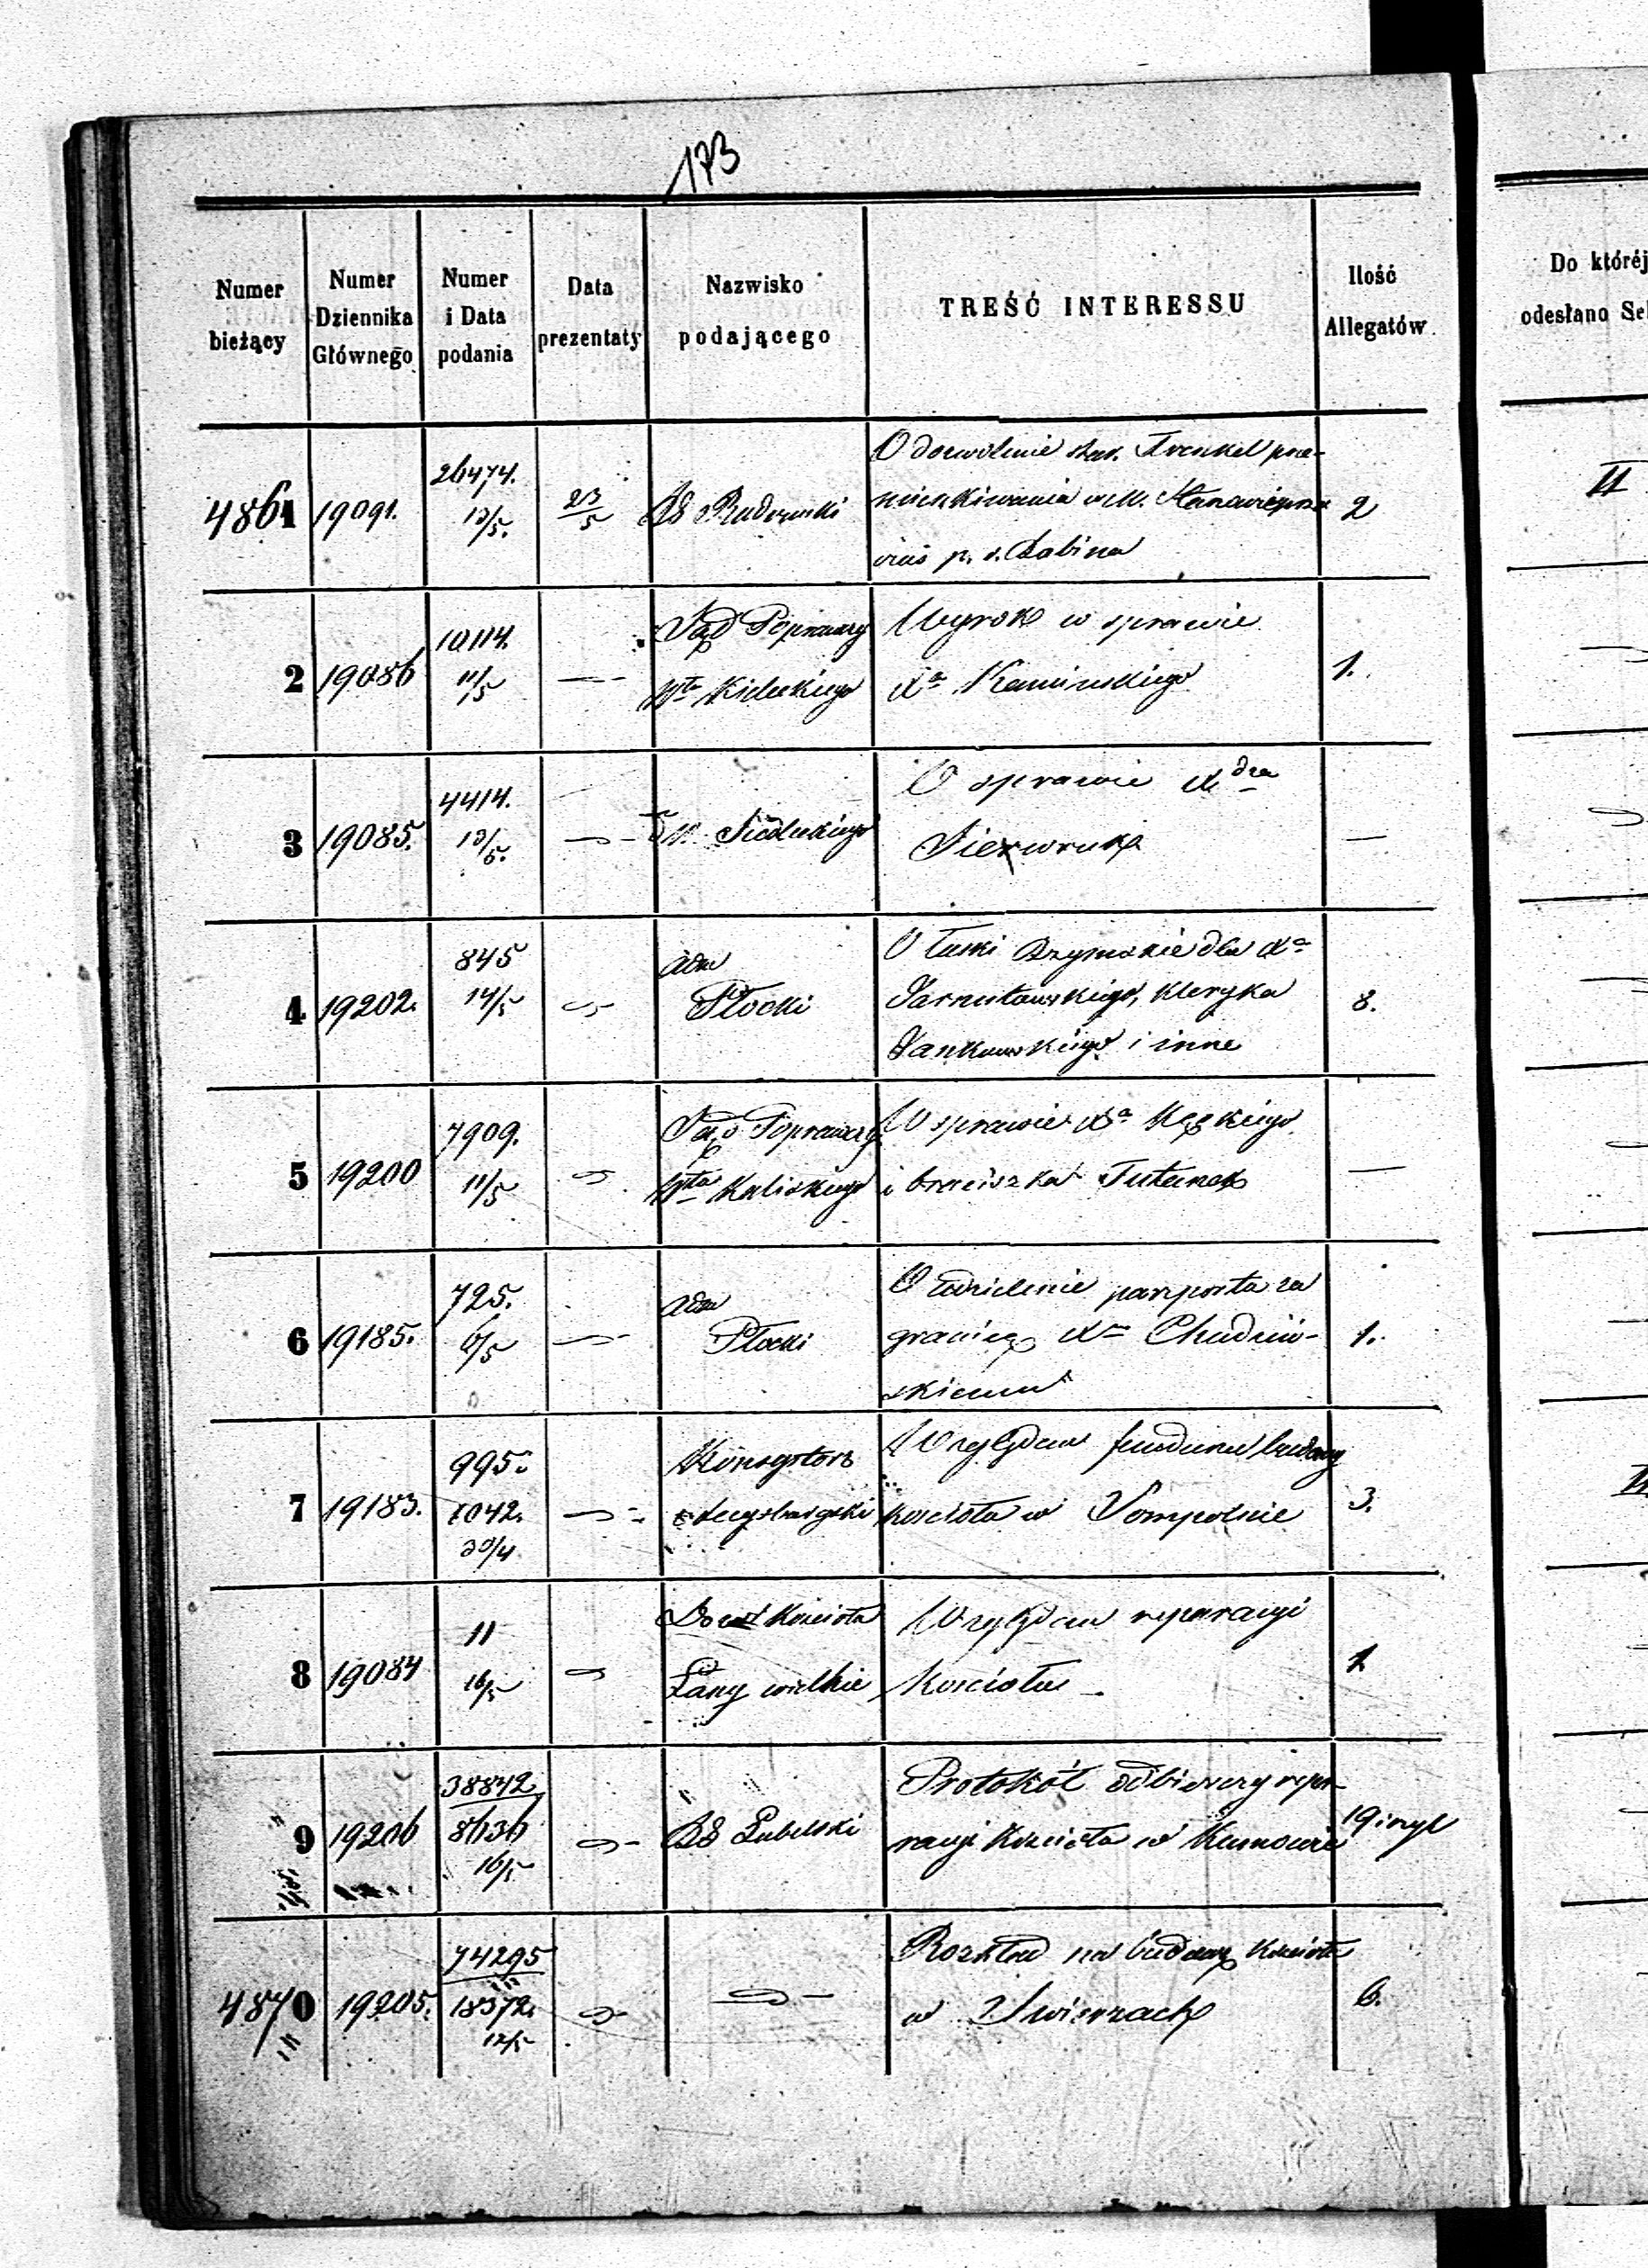 173
Numer bieżący
Numer Dziennika Głównego
Numer i Data podania
Data prezentaty
Nazwisko podającego
TREŚĆ INTERESSU
Ilość Allegatów
Do któréj
odesłano
4861 19091. 26474. 13/5. 23/5 RG Radomski
O dozwolenie star. Frenkel
2
II
2 19086 10114. 11/5 — Sąd Poprawczy
Wyrok w sprawie
Xa Kamińskiego
1.
3 19085. 4414. 13/5. Siedleckiego
O sprawie Xdza
—
4 19202. 845 14/5 Adm Płocki
dla Xa
kleryka
Jankowskiego i inne
8.
5 19200 7909. 11/5 Sąd Poprawczy
Kaliskiego
W sprawie Xa
i braciszka
—
6 19185. 725. 6/5 Adm Płocki
O udzielenie paszportu za
granicę Xu
skiemu
1.
7 19183. 995. 1042. 30/4 Konsystorz
Względem funduszu budowy
kościoła w Sompolnie
3.
8 19084 11 16/5 Dozór Kościoła
Łany wielkie
Względem reparacyi
Kościoła
1
9 19206 38842 8636 16/5 RG Lubelski
Protokół odbiorczy repa-
racyi Kościoła w Kumowie
19 i
4870 19205. 74295 18372. 12/5
Rozkład na budowę Kościoła
w Swierzach
6.